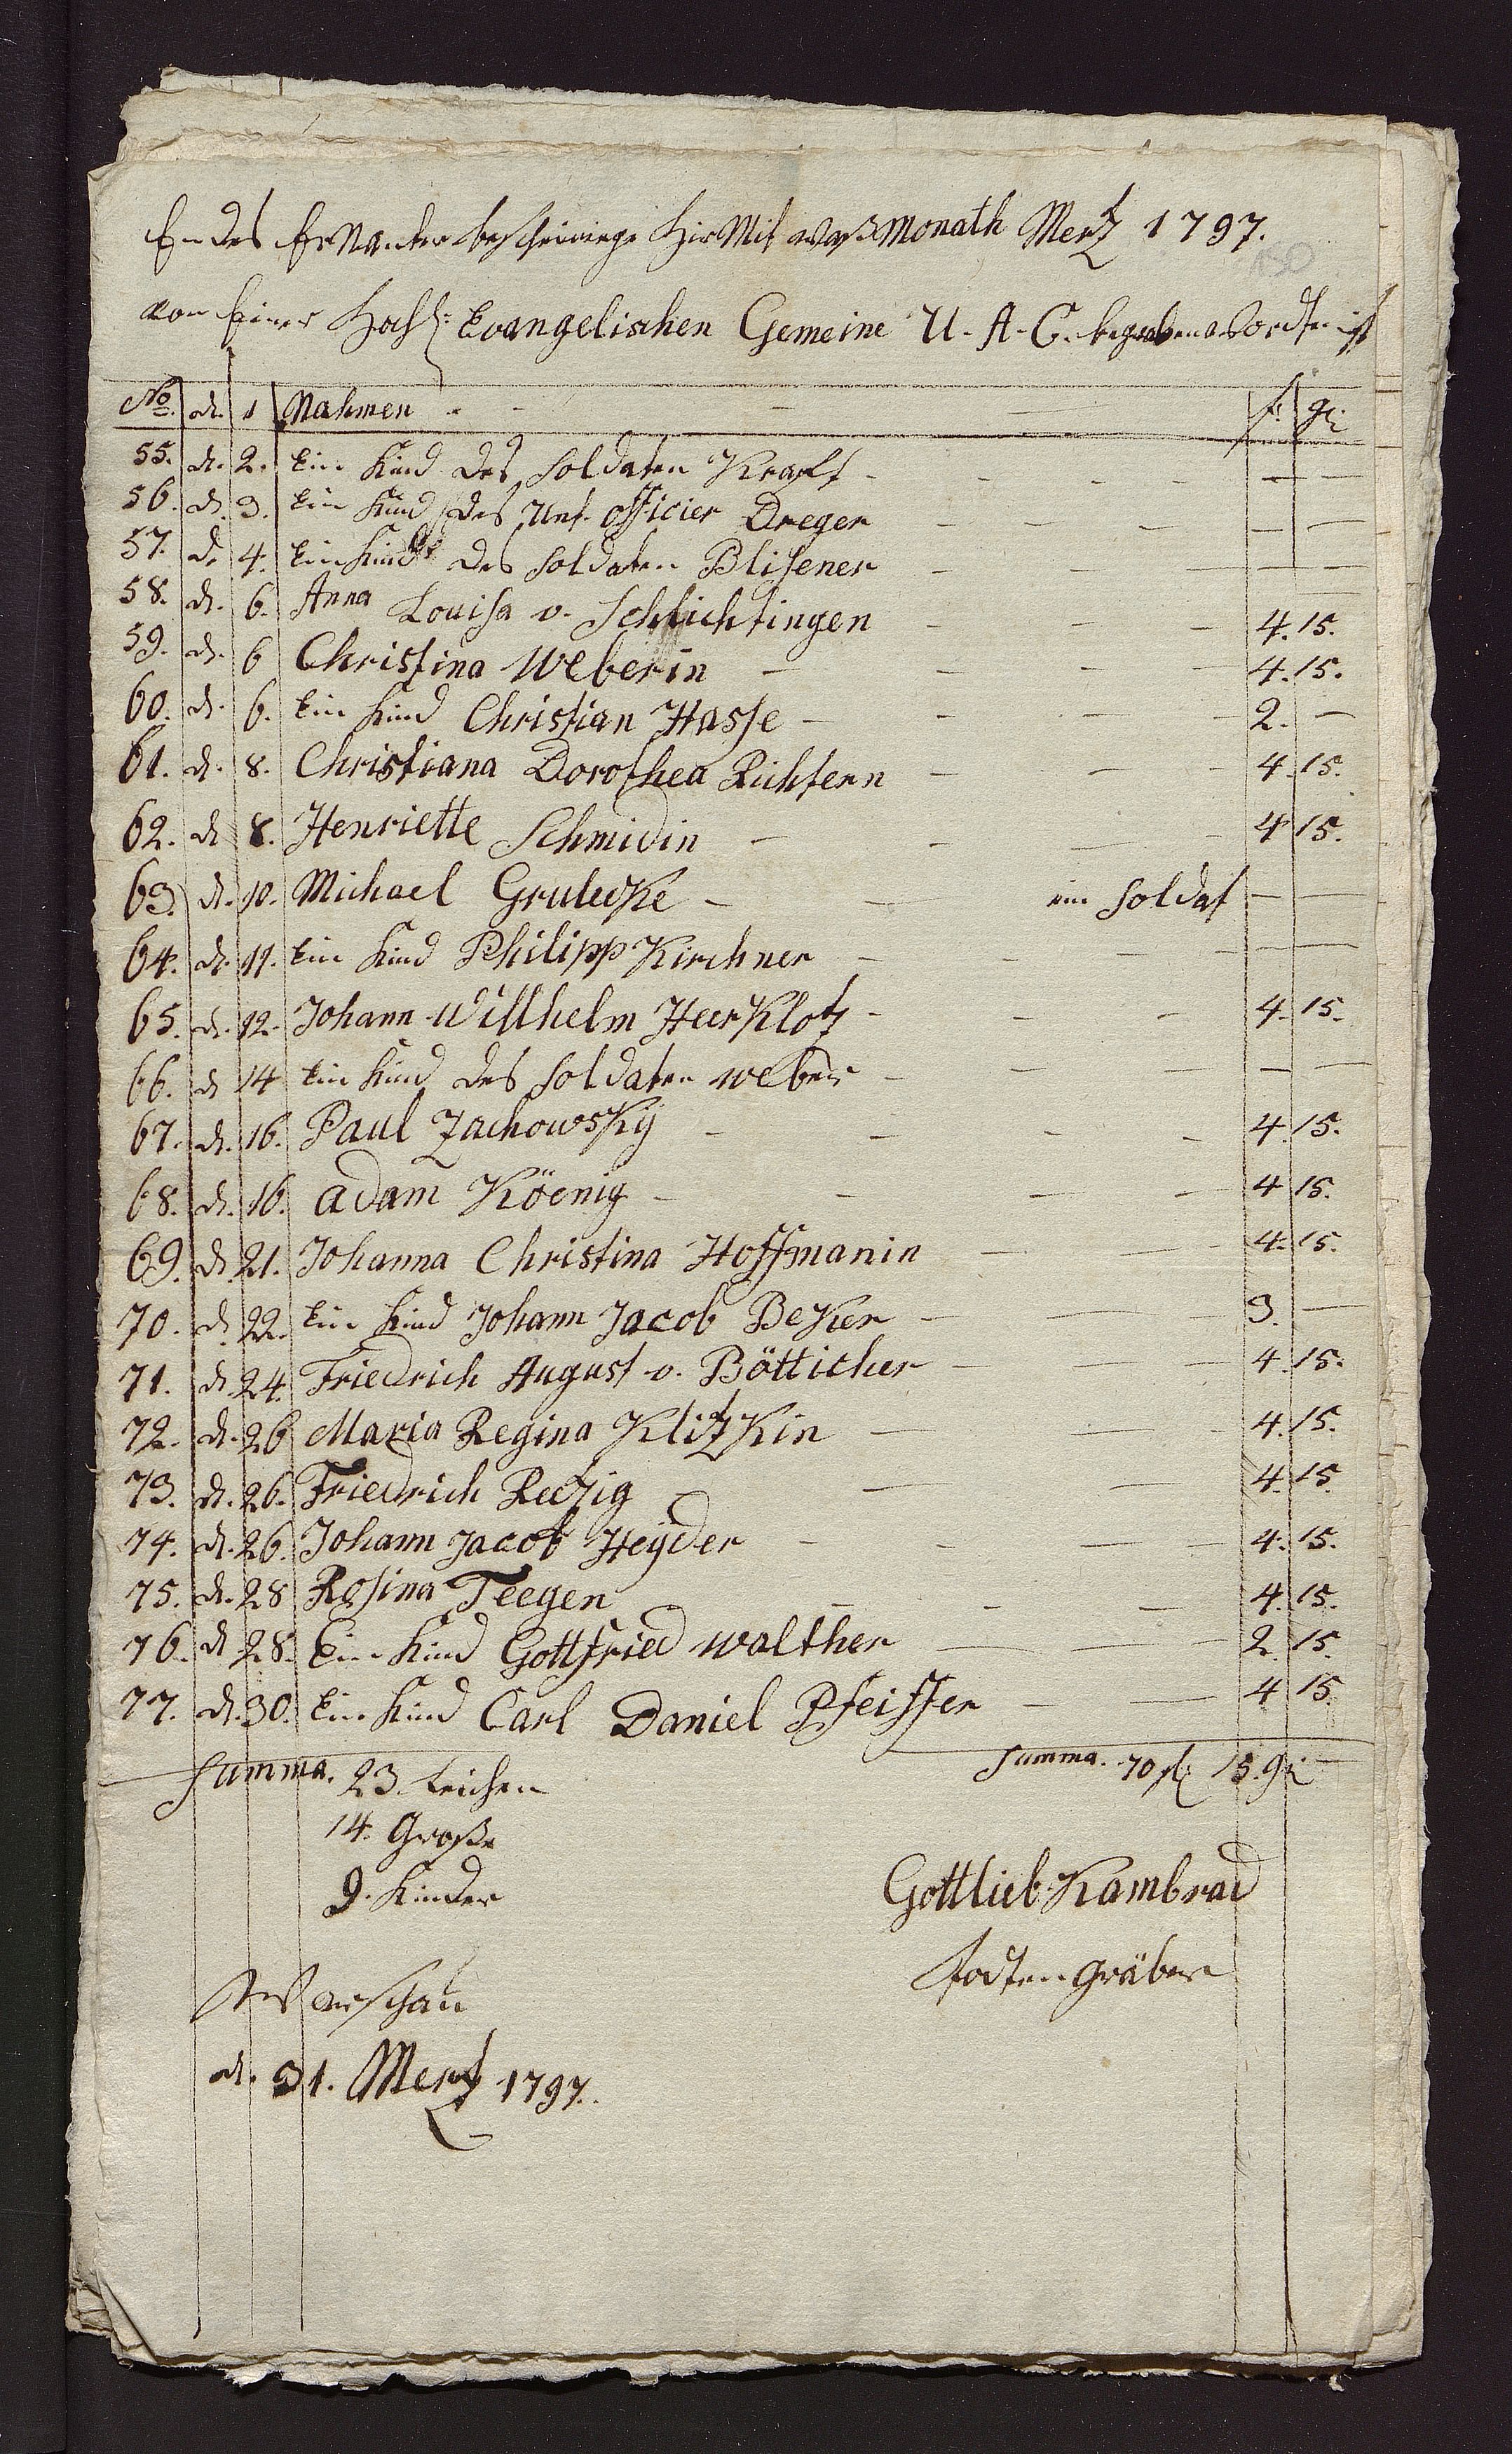 Endes Ernanter bescheinige hirMit waß Monath Mertz 1797.
von Einer Hochl: Evangelischen Gemeine U. A. C. begraben wordten ist
No. d. 1 Nahmen - - - - f. gr.
55. d. 2. Ein Kind des Soldaten Kraft - - - - — —
56. d. 3. Ein Kind des Unt. officier Dreger - - - - — —
57. d. 4. Ein Kind des Soldaten Blisener - - - — —
58. d. 6. Anna Louisa v. Schlichtingen - - - 4. 15.
59. d. 6 Christina Weberin - - - - 4. 15.
60. d. 6. Ein Kind Christian Hasse - - - - 2. —
61. d. 8. Christiana Dorothea Richtern - - - 4. 15.
62. d 8. Henriette Schmidin - - - - 4 15.
63. d. 10. Michael Grulecke - - ein Soldat — —
64. d. 11. Ein Kind Philipp Kirchner - - - - — —
65. d. 12. Johann Willhelm HeerKlotz - - - 4. 15.
66. d 14 Ein Kind des Soldaten weber - - - — —
67. d. 16. Paul ZachowsKÿ - - - - 4. 15.
68. d. 16. Adam Köenig - - - - 4 15.
69. d. 21. Johanna Christina Hoffmanin - - - 4. 15.
70. d. 22. Ein Kind Johann Jacob BeKer - - - 3. —
71. d. 24. Friedrich August v. Bötticher - - - 4. 15.
72. d. 26 Maria Regina KlitzKin - - - 4. 15.
73. d. 26. Friedrich Retzig - - - 4. 15
74. d. 26. Johann Jacob Heÿder - - - - 4. 15.
75. d. 28 Rosina Teegen - - - 4. 15.
76. d 28. Ein Kind Gottfried walther - - - 2. 15.
77. d. 30. Ein Kind Carl Daniel Pfeiffer - - 4 15
Summa. 23. Leichen Summa. 70 fl 15. gr
14. Große
9. Kinder
Gottlieb Kambrad
Todten gräber
Warschau
d. 31. Mertz 1797.